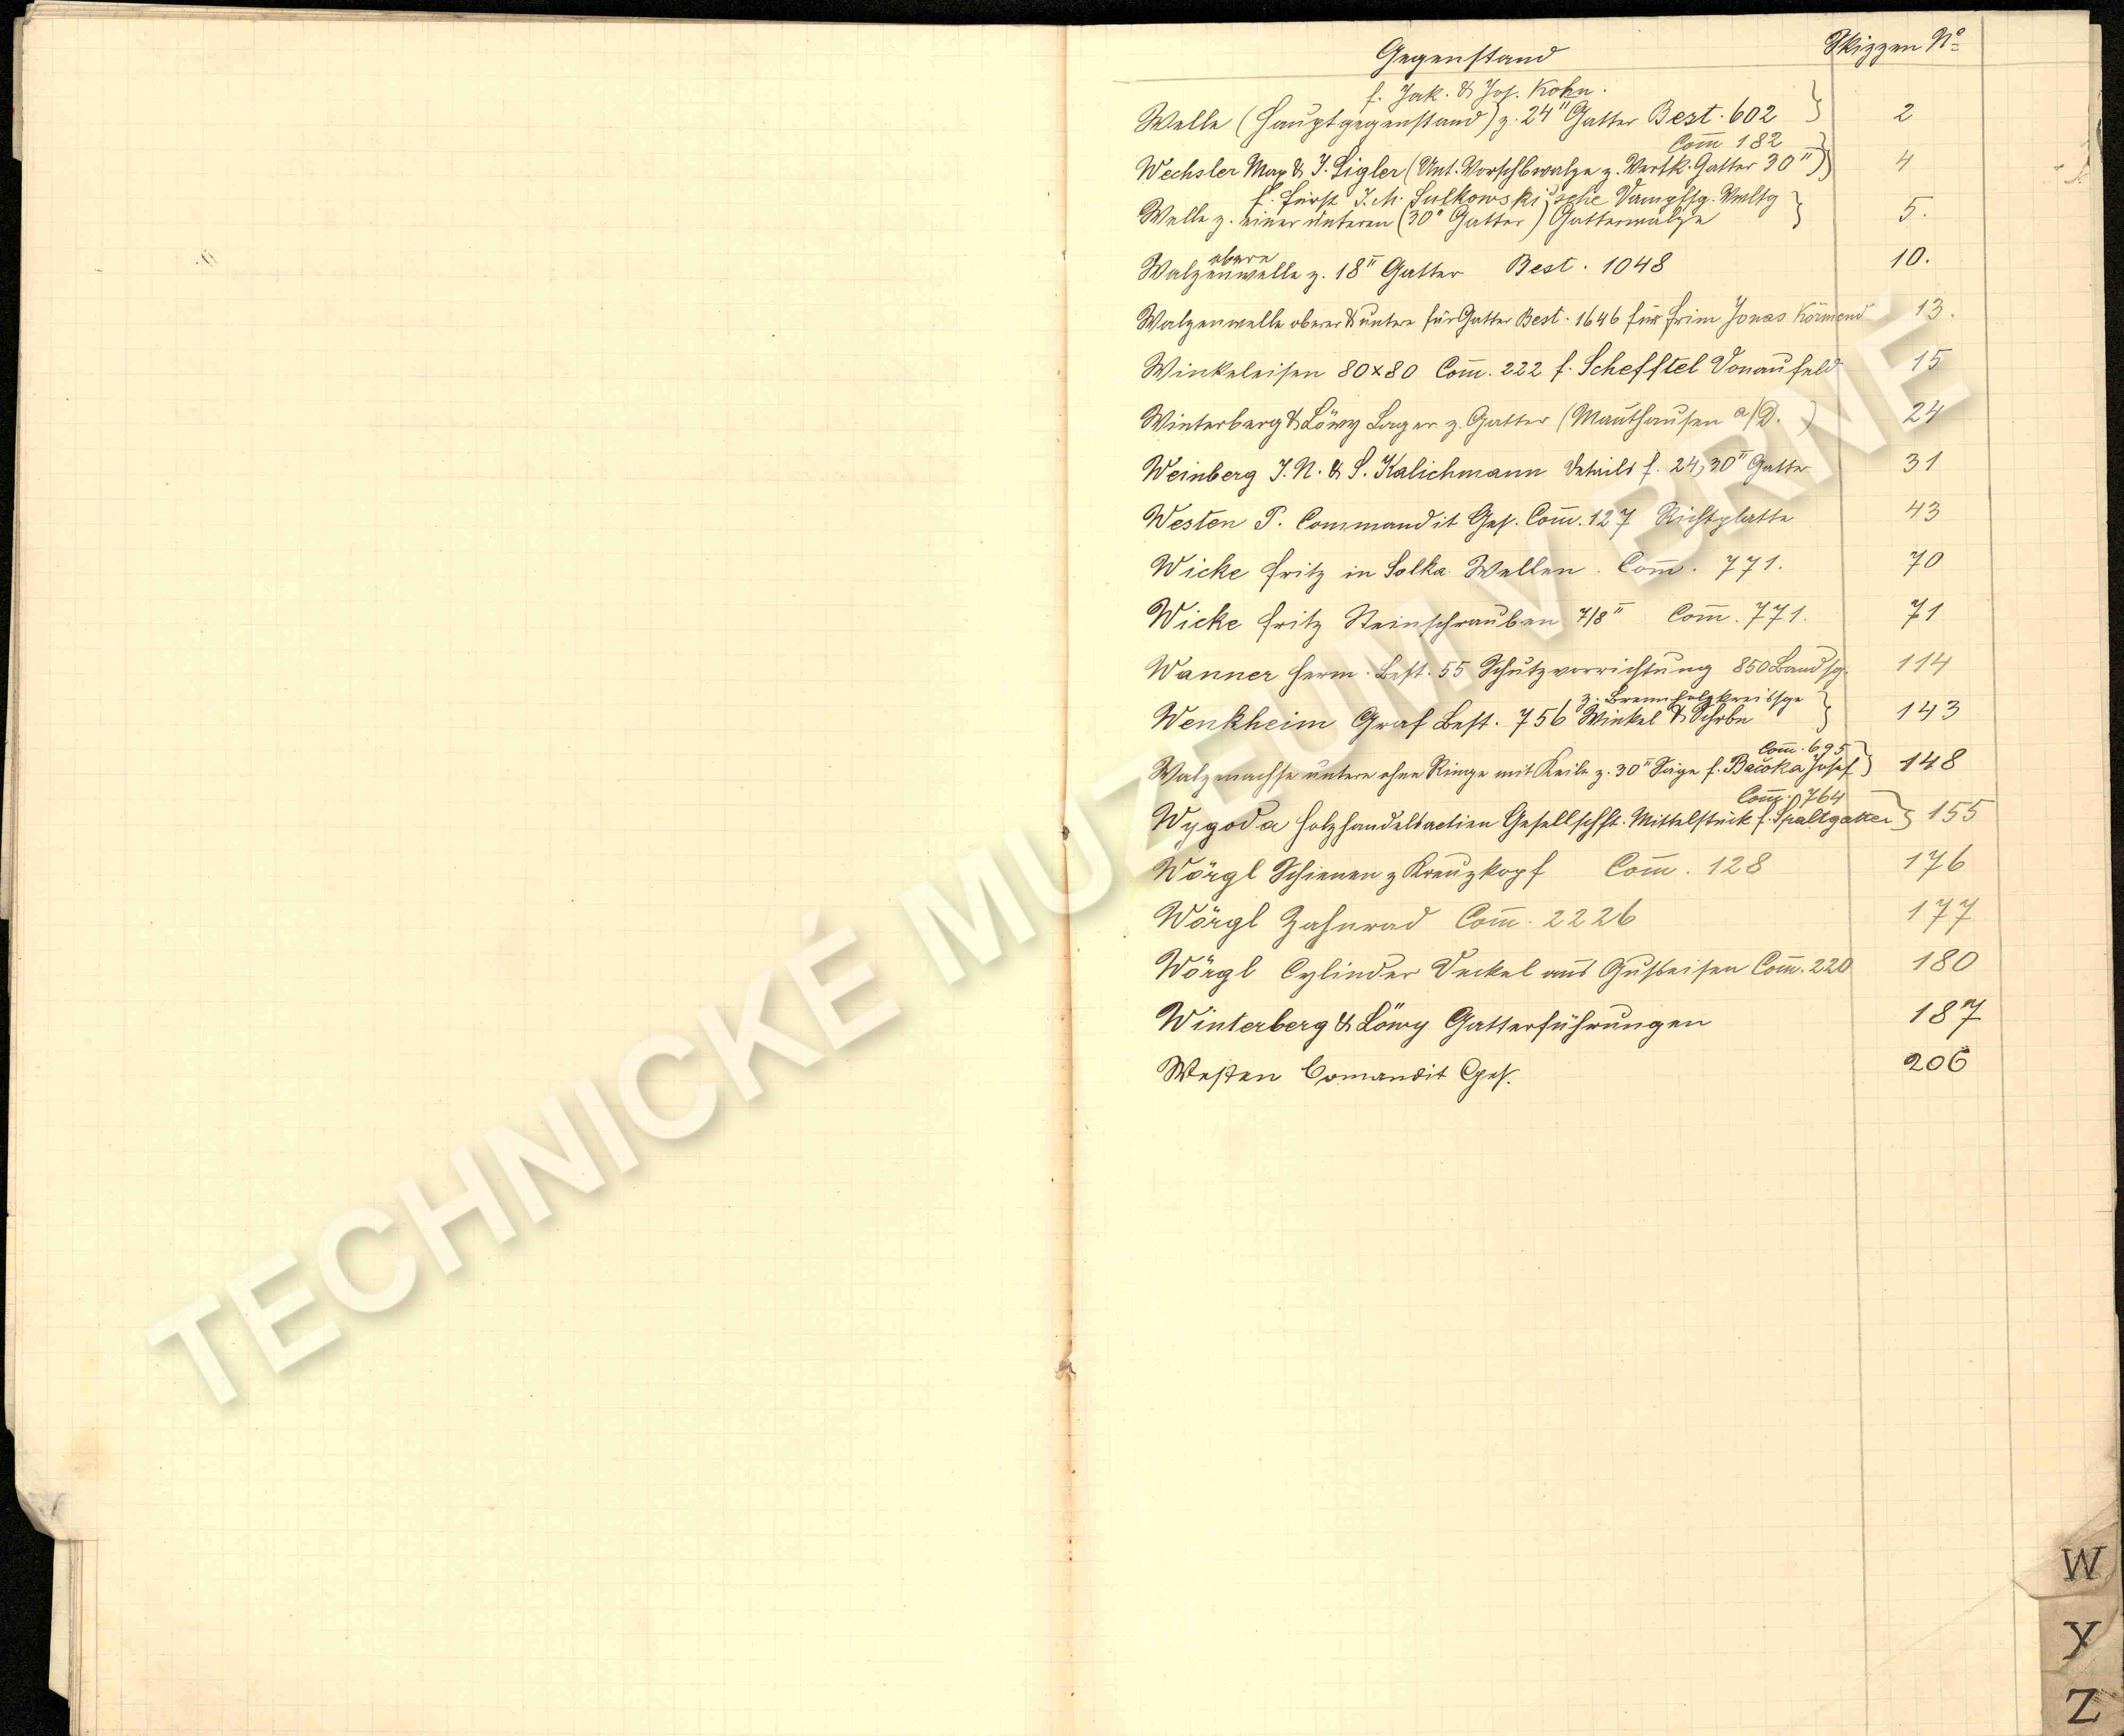 Gegenstand Skizzen No
f. Jak. & Jos. Kohn.
Welle (Hauptgegenstand) z. 24" Gatter Best. 602 2
Com̄ 182
Wechsler Max & J. Sigler (Unt. Vorschbwalze z. Vertk. Gatter 30") 4
f. Fürst J. M. Sulkowski'sche Dampfsg. Vwltg
Welle z. einer unteren (30" Gatter) Gatterwalze 5.
obere
Walzenwelle z. 18" Gatter Best. 1048 10.
Walzenwelle oberer & untere für Gatter Best. 1646 für Frim Jonas Körmend 13.
Winkeleisen 80x80 Com̄. 222 f. Schefftel Donaufeld 15
Winterberg & Löwy Lager z. Gatter (Mauthausen a/D.) 24
Weinberg J. N. & S. Kalichmann Details f. 24, 30" Gatter 31
Westen P. Commandit Ges. Com̄. 127 Richtplatte 43
Wicke Fritz in Solka Wellen. Com̄. 771. 70
Wicke Fritz Steinschrauben 7/8" Com̄. 771. 71
Wanner Herm. Best. 55 Schutzvorrichtung 850 Bandsg. 114
z. Brennholzkreissge
Wenkheim Graf Best. 756 Winkel & Schrbn 143
Com̄. 695
Walzenachse untere ohne Ringe mit Keile z. 30" Säge f. Bačoka Josef 148
Com̄. 764
Wygoda Holzhandelsactien Gesellschft. Mittelstück f. Spaltgatter 155
Wörgl Schienen z Kreuzkopf Com̄. 128 176
Wörgl Zahnrad Com̄. 2226 177
Wörgl Cylinder Deckel aus Gußeisen Com̄. 220 180
Winterberg & Löwy Gatterführungen 187
Westen Comandit Ges. 206
W
Y
Z
TECHNICKÉ MUZEUM V BRNĚ